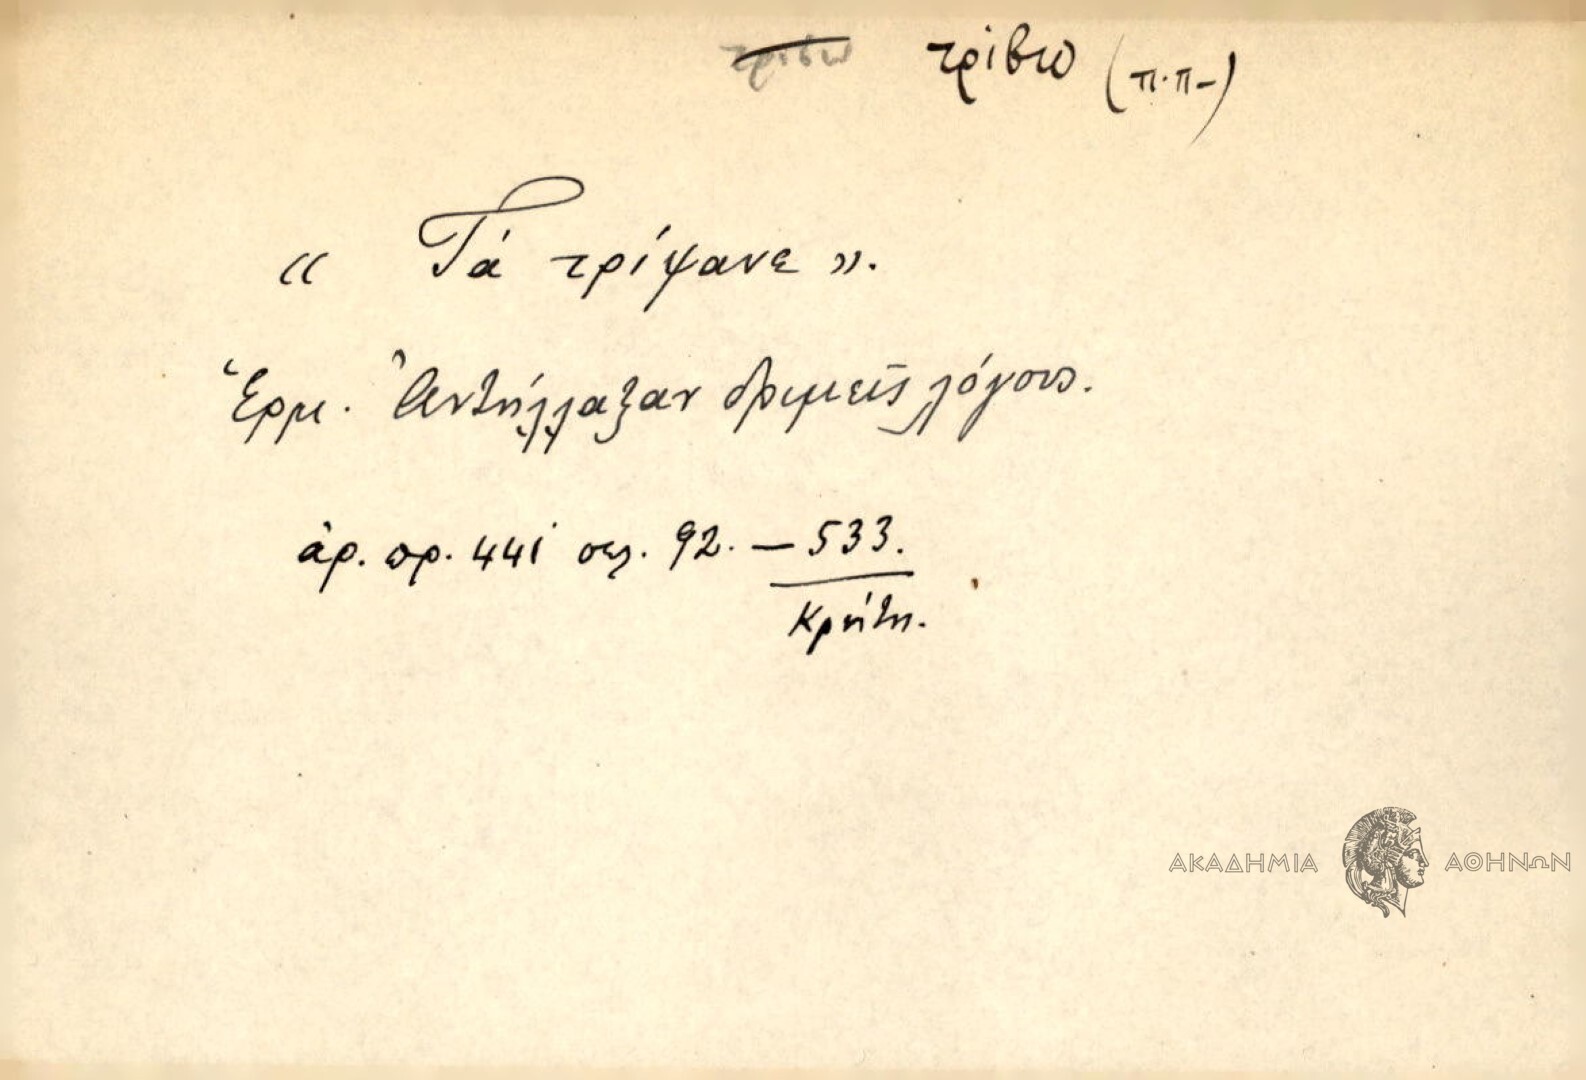 τρίβω τρίβω (π.π-)
« Τά τρίψανε ».
Ἑρμ. Ἀντήλλαξαν δριμεῖς λόγους.
ἀρ. πρ. 441 σελ. 92. – 533.
Κρήτη.
ΑΚΑΔΗΜΙΑ ΑΘΗΝΩΝ